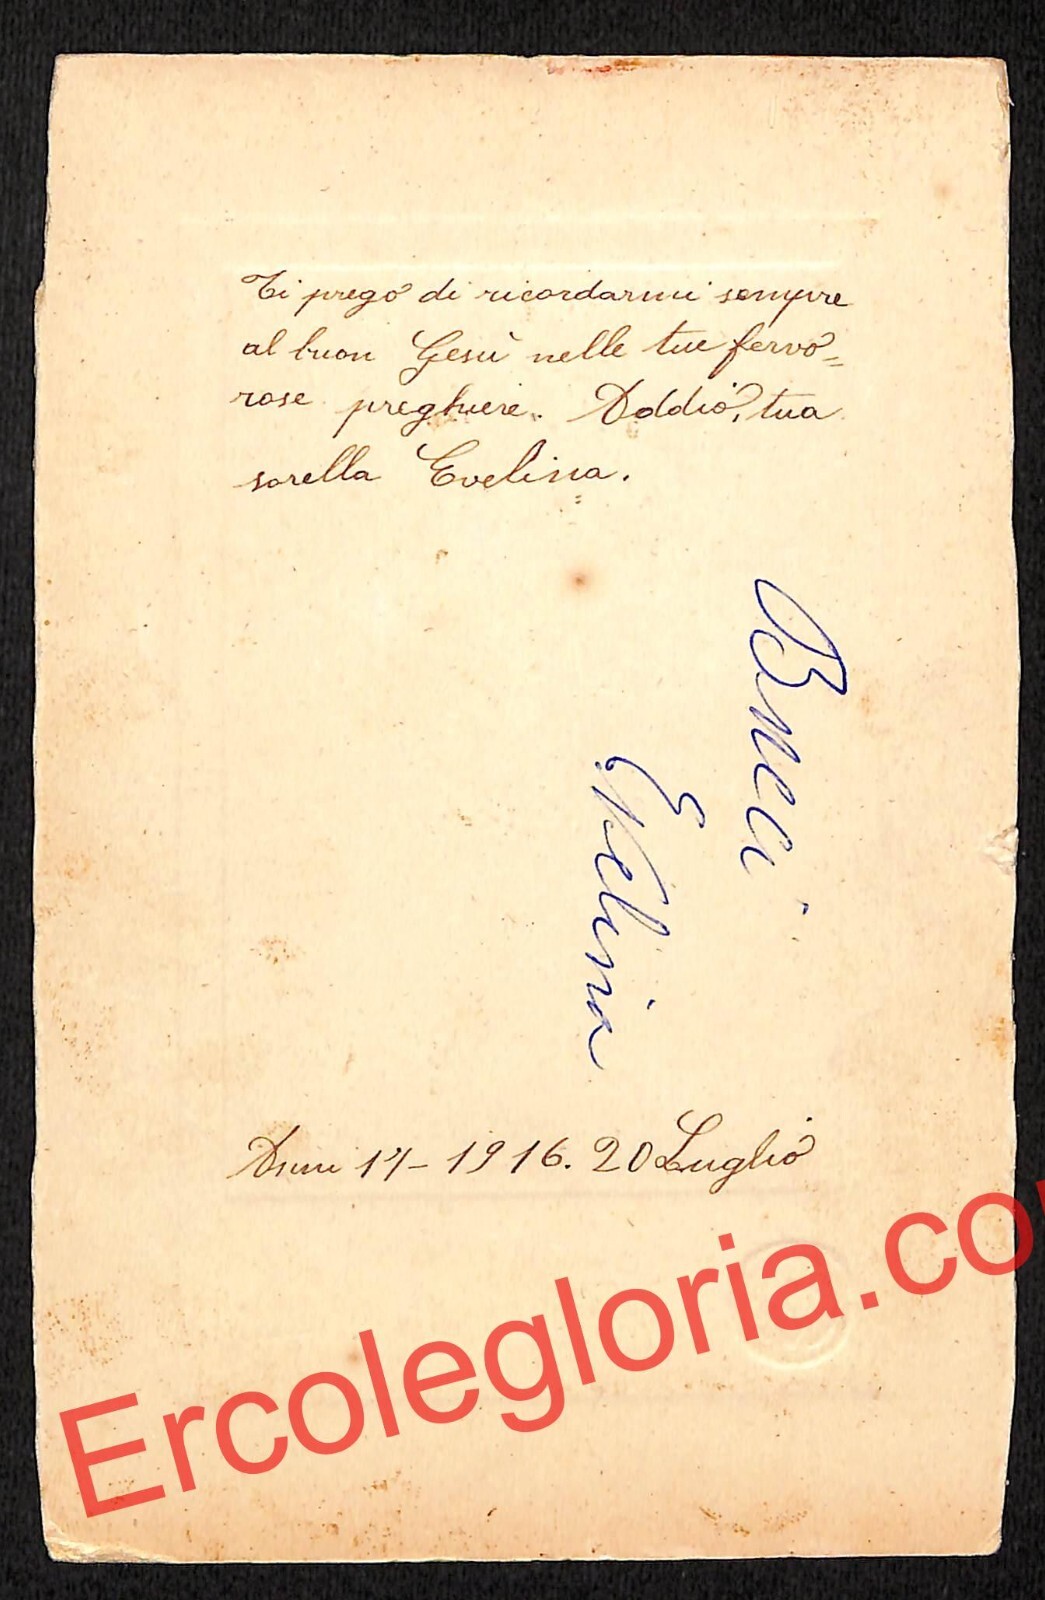 Ti prego di ricordarmi sempre
al buon Gesù nelle tue fervo=
rose preghiere. Addio, tua
sorella Evelina.
Evelina
Anni 17 - 1916. 20 Luglio
Ercolegloria.co